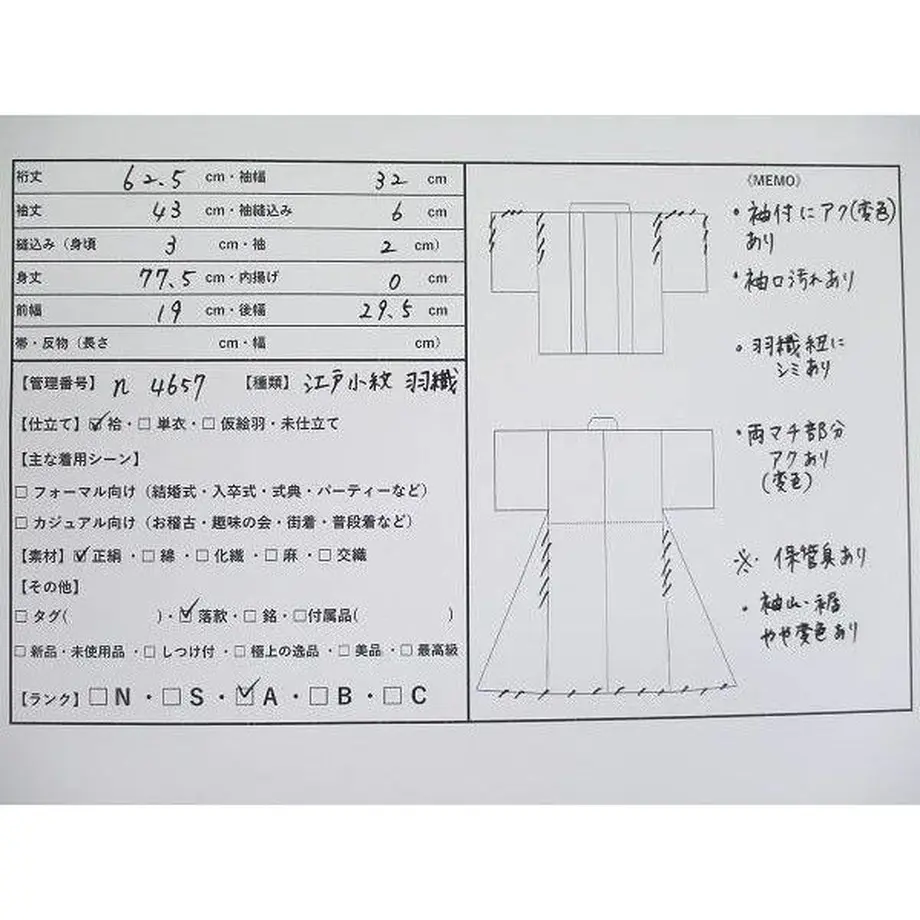 裄丈 62.5 cm・袖幅 32 cm
袖丈 43 cm・袖縫込み 6 cm
縫込み（身頃 3 cm・袖 2 cm）
身丈 77.5 cm・内揚げ 0 cm
前幅 19 cm・後幅 29.5 cm
帯・反物（長さ cm・幅 cm）
【管理番号】 n 4657 【種類】 江戸小紋 羽織
【仕立て】☑袷・☐単衣・☐仮絵羽・未仕立て
【主な着用シーン】
☐フォーマル向け（結婚式・入卒式・式典・パーティーなど）
☐カジュアル向け（お稽古・趣味の会・街着・普段着など）
【素材】☑正絹・☐綿・☐化繊・☐麻・☐交織
【その他】
☐タグ( )・☑落款・☐銘・☐付属品( )
☐新品・未使用品・☐しつけ付・☐極上の逸品・☐美品・☐最高級
【ランク】☐N・☐S・☑A・☐B・☐C
《MEMO》
・袖付にアク(変色)
あり
・袖口汚れあり
・羽織紐に
シミあり
・両マチ部分
アクあり
(変色)
※・保管臭あり
・袖山・裾
やや変色あり